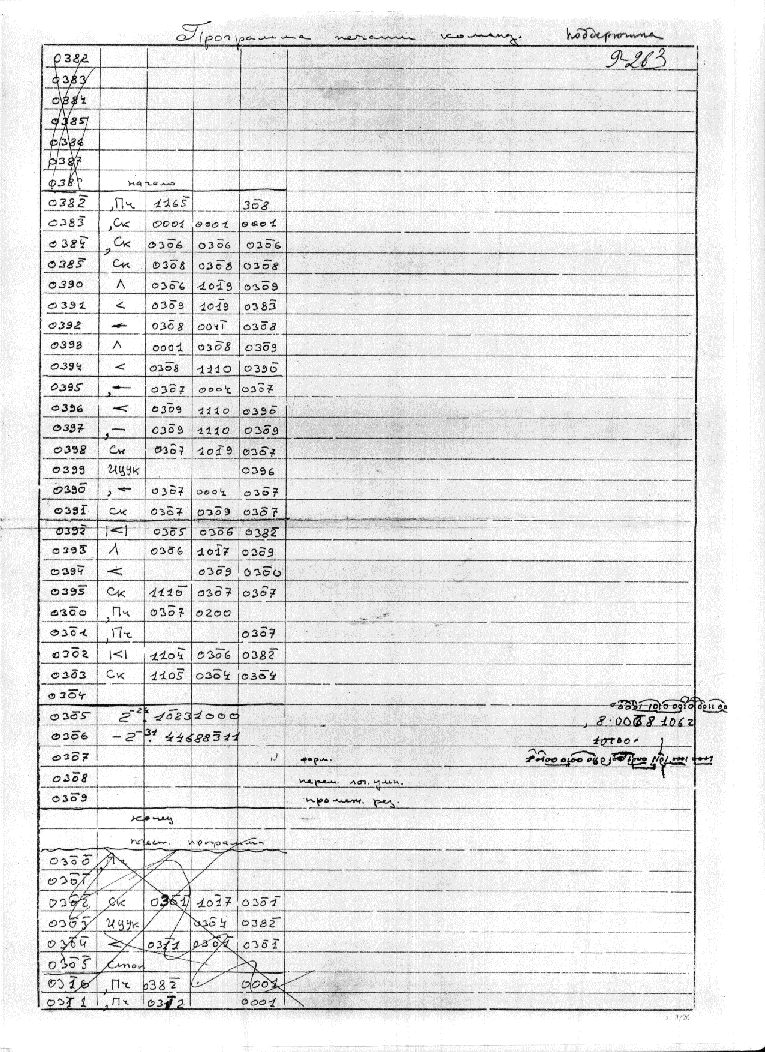 Программа печати команд. Поддерюгина
9-263
0382
0383
0384
0385
0386
0387
038
начало
038̅2̅ ,Пч 116̅5̅ 30̅8
038̅3̅ ,Ск 0001 0001 0001
038̅4̅ ,Ск 030̅6 030̅6 030̅6
038̅5̅ Ск 030̅8 030̅8 030̅8
0390 ∧ 030̅6 101̅9 030̅9
0391 < 030̅9 101̅9 038̅3̅
0392 ← 030̅8 030̅8
0393 ∧ 0001 030̅8 030̅9
0394 < 030̅8 1110 0390̅
0395 ,← 030̅7 0004 030̅7
0396 < 030̅9 1110 0390̅
0397 ,— 030̅9 1110 030̅9
0398 Ск 030̅7 101̅9 030̅7
0399 ИЦУК 0396
0390̅ ,← 030̅7 0004 030̅7
0391̅ Ск 030̅7 030̅9 030̅7
0392̅ |<| 030̅5 030̅6 0382̅
0393̅ ∧ 030̅6 101̅7 030̅9
0394̅ < 030̅9 030̅0
0395̅ Ск 1110̅ 030̅7 030̅7
030̅0 ,Пч 030̅7 0200
030̅1 ,Пч 030̅7
030̅2 |<| 1104̅ 030̅6 0382̅
030̅3 Ск 1105̅ 030̅4 030̅4
030̅4
030̅5 2⁻²⁴: 10231000
8.0068 1062
030̅6 -2⁻³¹: 44688311
030̅7 форм.
030̅8 перем. лог. умн.
030̅9 промеж. рез.
конец
030̅0̅ ,Пч
030̅1̅
030̅2̅ Ск 030̅1̅ 101̅7 030̅1̅
030̅3̅ ИЦУК 030̅4 0382̅
030̅4̅ < 031̅1 030̅1̅ 030̅1̅
030̅5̅ Стоп
031̅0 ,Пч 0382̅ 0001
031̅1 ,Пч 031̅2 0001